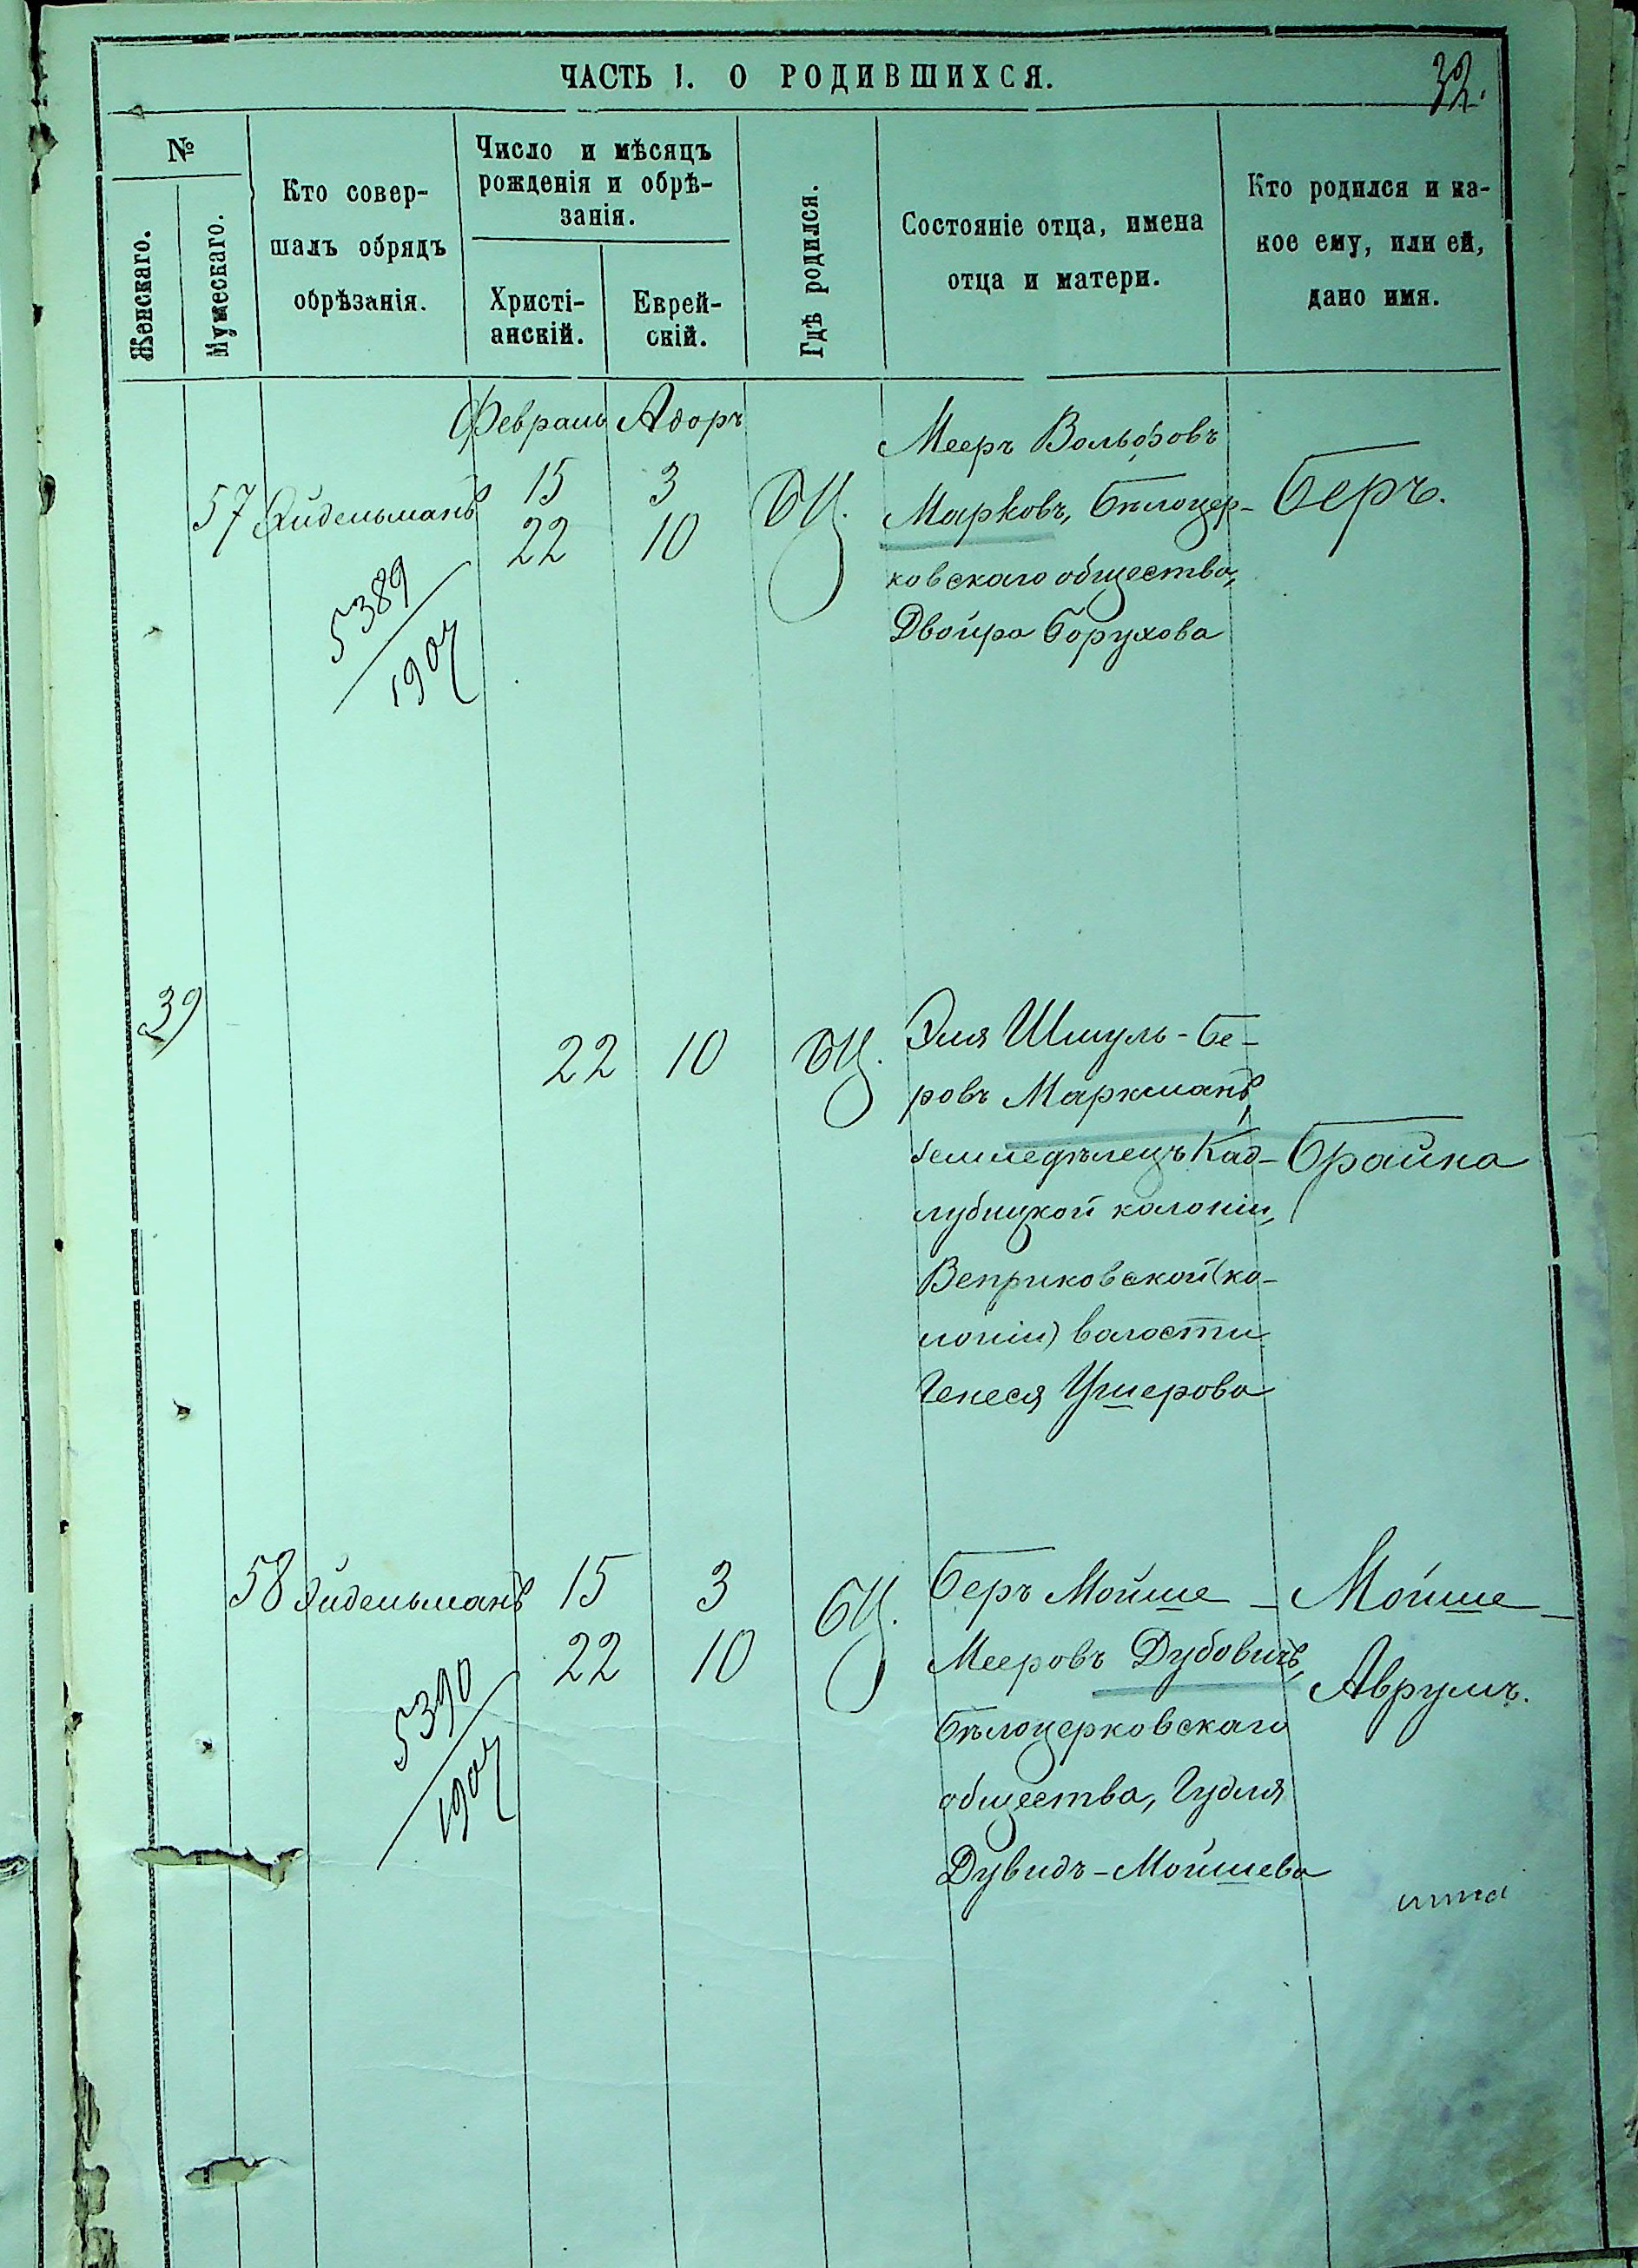 ЧАСТЬ I. О РОДИВШИХСЯ.
32.
№
Женскаго.
Мужескаго.
Кто совер-
шалъ обрядъ
обрѣзанія.
Число и мѣсяцъ
рожденія и обрѣ-
занія.
Христі-
анскій.
Еврей-
скій.
Гдѣ родился.
Состояніе отца, имена
отца и матери.
Кто родился и ка-
кое ему, или ей,
дано имя.
Февраль Адоръ
57 Эйдельманъ
15 3
22 10
БЦ.
Мееръ Вольфовъ
Марковъ, Бѣлоцер-
ковскаго общества,
Двойра Борухова
Беръ.
5389
1904
39
22 10
БЦ.
Эля Шмуль-Бе-
ровъ Маркманъ,
земледѣлецъ Кад-
лубицкой колоніи,
Веприковской (ко-
лоніи) волости
Генеся Ушерова
Брайна
58 Эйдельманъ
15 3
22 10
БЦ.
Беръ Мойше-
Мееровъ Дубовичъ,
Бѣлоцерковскаго
общества, Гудля
Дувидъ-Мойшева
Мойше-
Аврумъ.
5390
1904